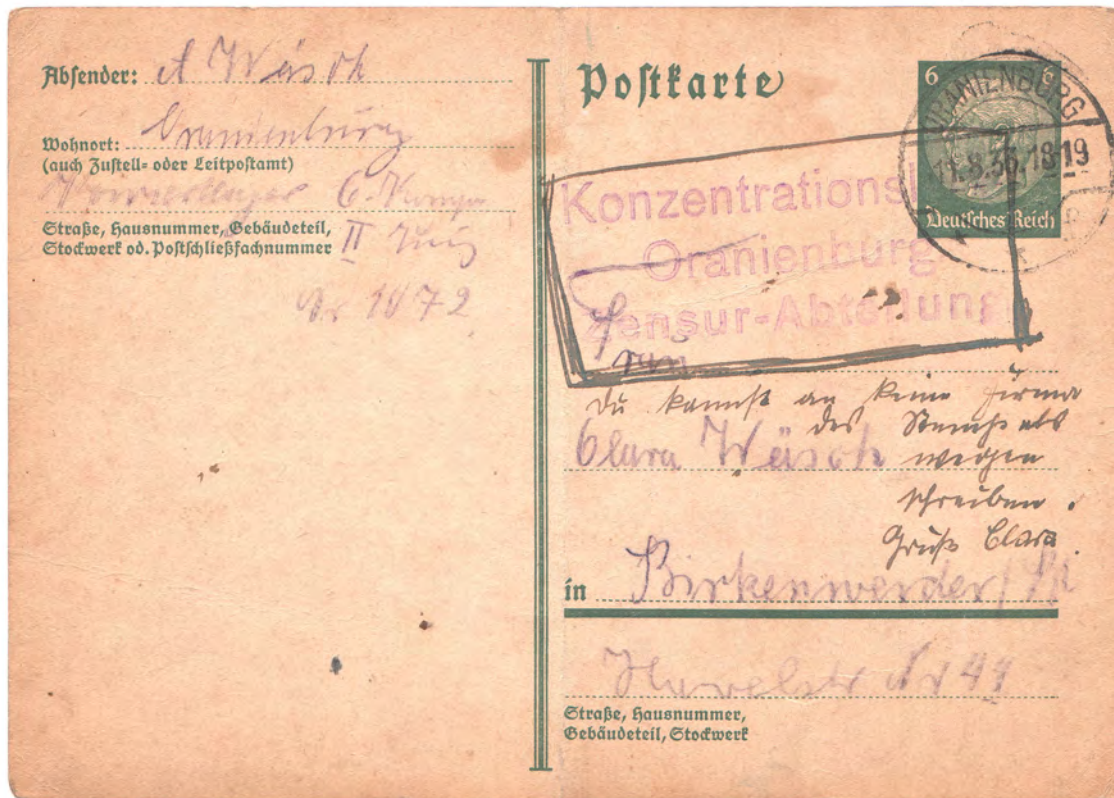 Absender: A Wäsch
Wohnort: Oranienburg
(auch Zustell- oder Leitpostamt)
6.
Straße, Hausnummer, Gebäudeteil,
Stockwerk od. Postschließfachnummer II Zug
Nr 1072
Postkarte
6 6
ORANIENBURG
18-19
Deutsches Reich
Konzentrationsl
Oranienburg
Zensur-Abteilung
Frau
Du kannst an keine Firma
des
Clara Wäsch wegen
schreiben.
Gruß Clara.
in Birkenwerder
Havelstr Nr 44
Straße, Hausnummer,
Gebäudeteil, Stockwerk